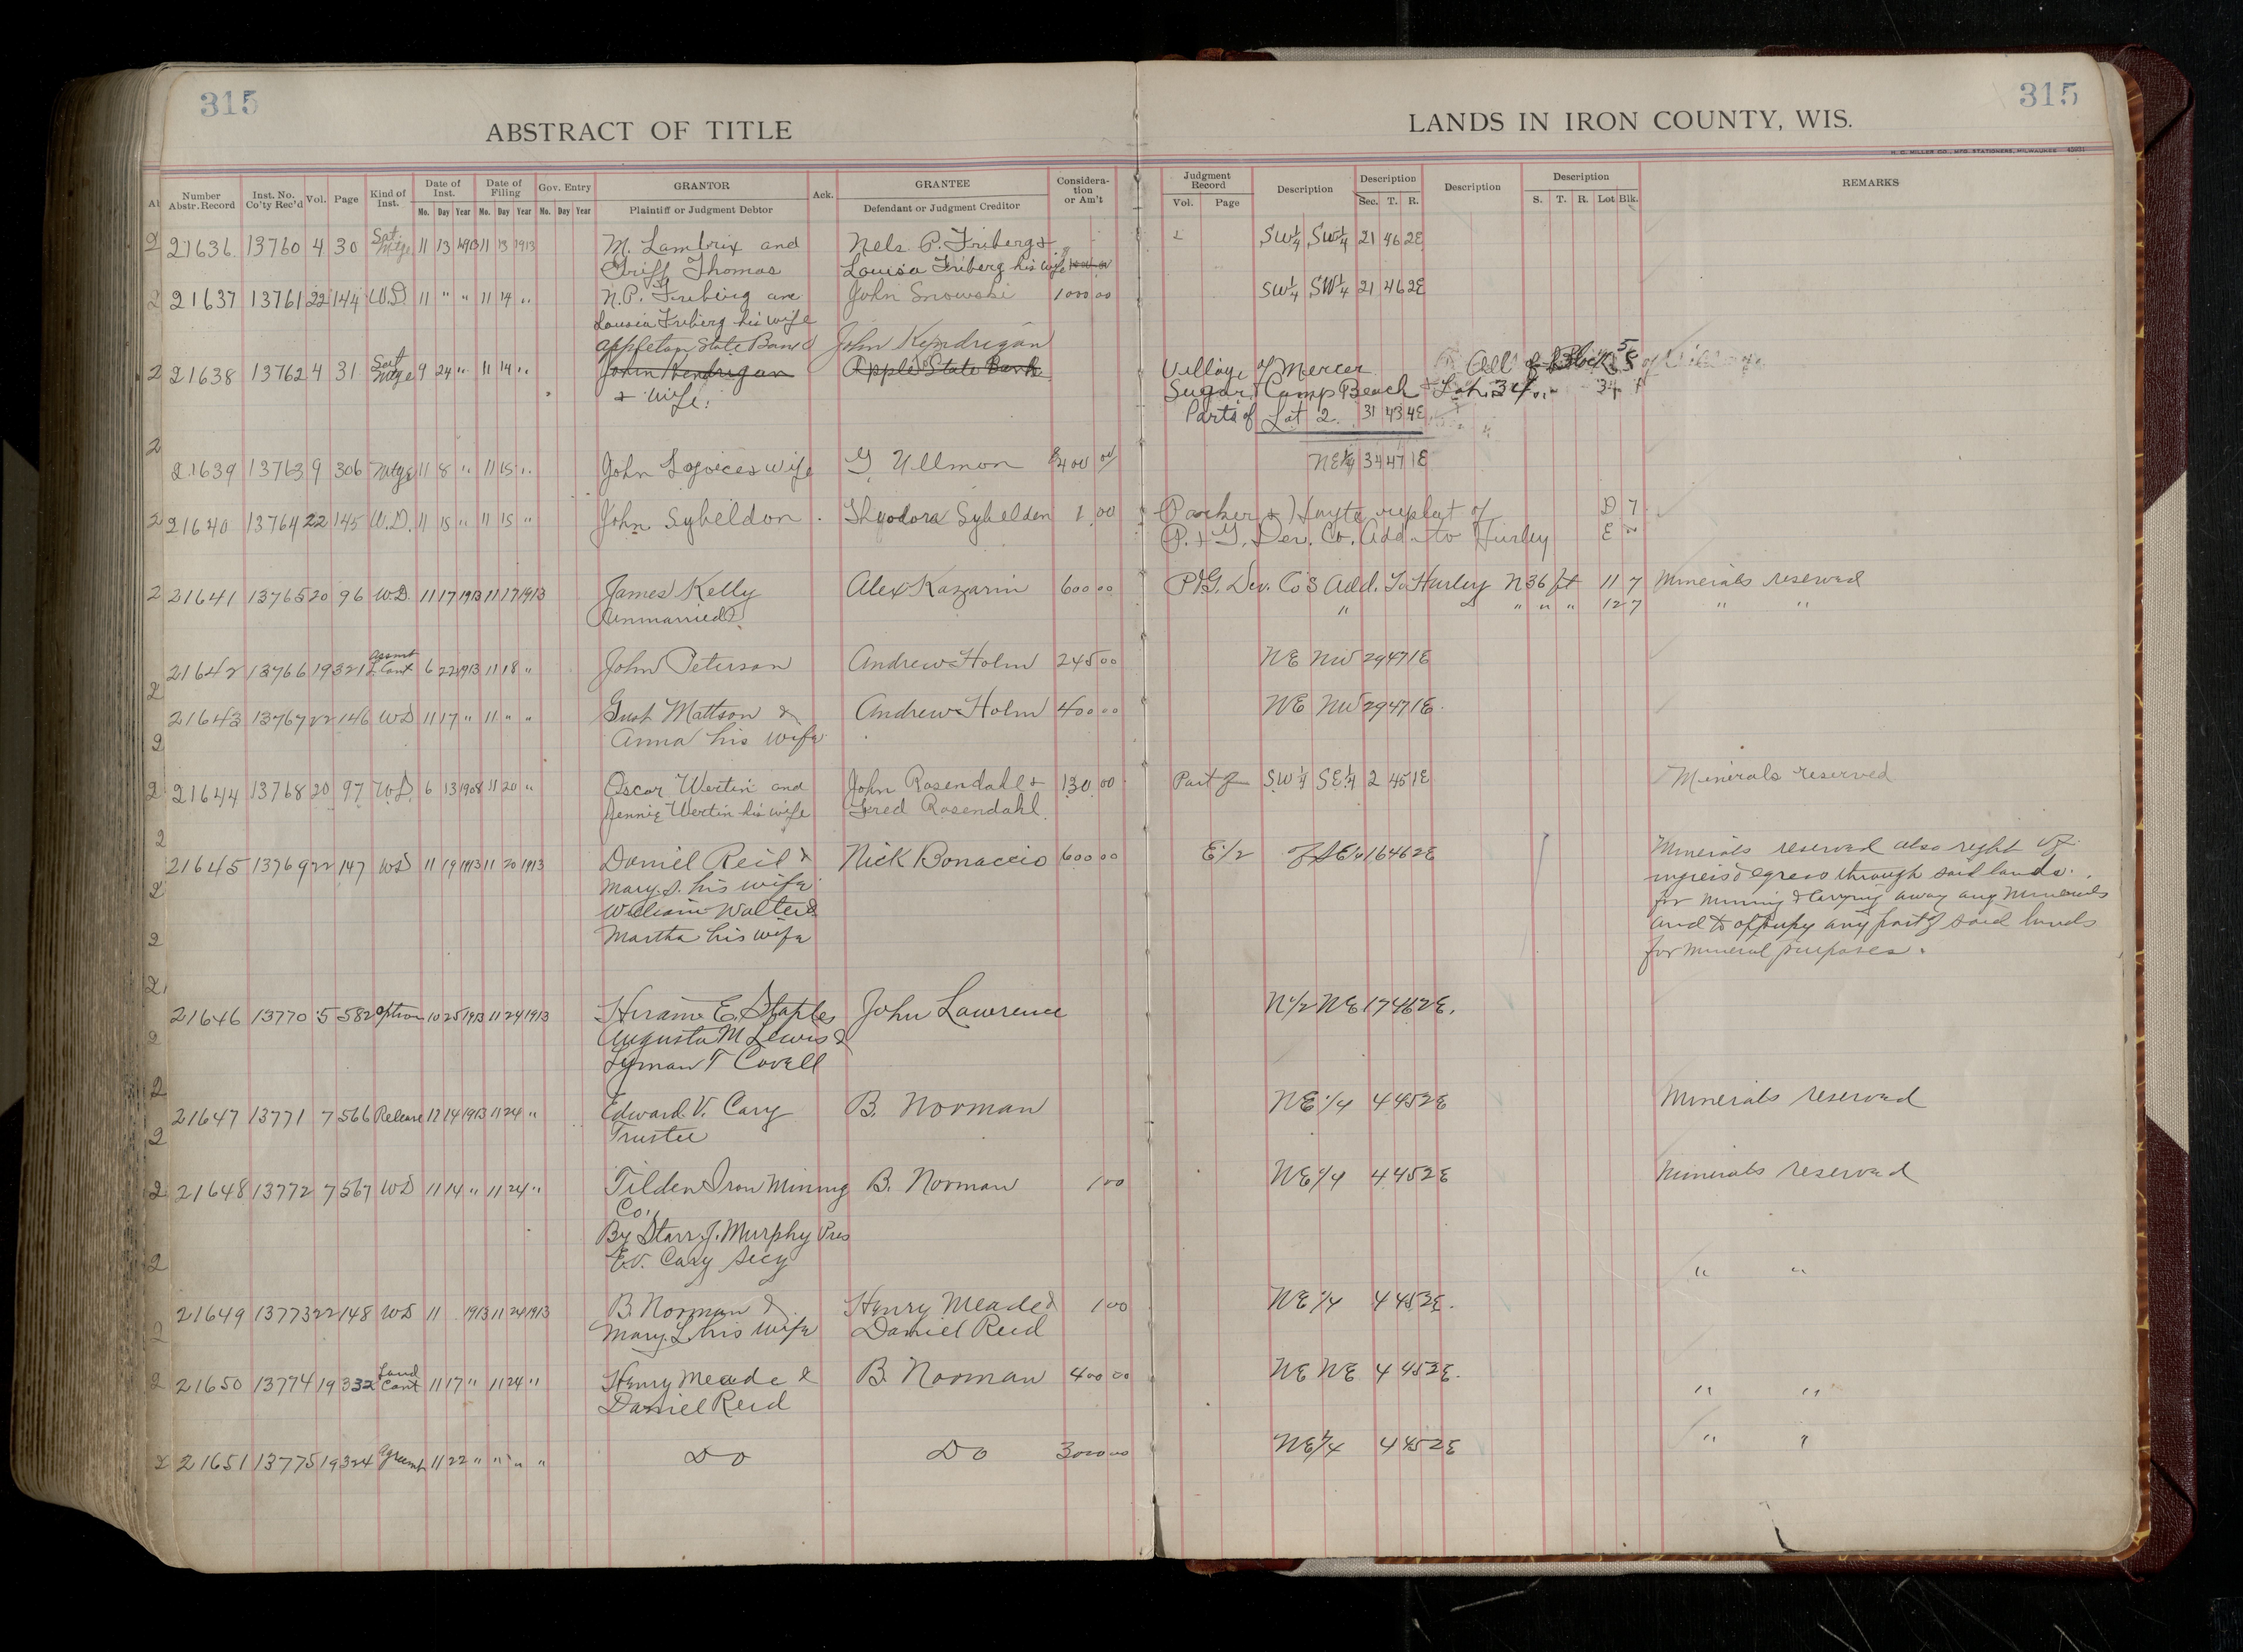 315
315
ABSTRACT OF TITLE
LANDS IN IRON COUNTY, WIS.
H. C. MILLER CO., MFG. STATIONERS, MILWAUKEE
Number Abstr. Record Inst. No. Co'ty Rec'd Vol. Page Kind of Inst. Date of Inst. Date of Filing Gov. Entry GRANTOR Ack. GRANTEE Considera-tion or Am't Judgment Record Description Description Description Description REMARKS
Mo. Day Year Mo. Day Year Mo. Day Year Plaintiff or Judgment Debtor Defendant or Judgment Creditor Vol. Page Sec. T. R. S. T. R. Lot Blk.
21636 13760 4 30 Sat. Mtge 11 13 1913 11 13 1913 M. Lambrix and Nels P. Friberg & SW 1/4 SW 1/4 21 46 2E
Griff Thomas Louisa Friberg his wife
21637 13761 22 144 WD 11 " " 11 14 " N.P. Friberg and John Snowski 1000 00 SW 1/4 SW 1/4 21 46 2E
Lousia Friberg his wife
Appleton State Bank John Kendrigan
21638 13762 4 31 Sat Mtge 9 24 " 11 14 " John Kendrigan Apple State Bank Village of Mercer All of Block 5
& wife. Sugar Camp Beach & Lot 34
Parts of Lot 2 31 43 4E
21639 13763 9 306 Mtge 11 8 " 11 15 " John & wife G. Ullman 400 00 NE 1/4 34 47 1E
21640 13764 22 145 W.D. 11 15 " 11 15 " John Sybeldon Theodora Sybeldon 1 00 Parker & Hoyts replat of D 7
P. & G. Dev. Co. Add to Hurley E "
21641 13765 20 96 WD 11 17 1913 11 17 1913 James Kelly Alex Kazarin 600 00 P&G. Dev. Co's Add. To Hurley N 36 ft 11 7 Minerals reserved
Unmarried " " " " " 12 7 " "
21642 13766 19 321 Assmt L. Cont 6 22 1913 11 18 " John Peterson Andrew Holm 245 00 NE NW 29 47 1E
21643 13767 22 146 WD 11 17 " 11 " " Gust Mattson & Andrew Holm 400 00 NE NW 29 47 1E
Anna his wife
21644 13768 20 97 WD. 6 13 1908 11 20 " Oscar Wertin and John Rosendahl & 130 00 Part of SW 1/4 SE 1/4 2 45 1E Minerals reserved
Jennie Wertin his wife Fred Rosendahl
21645 13769 22 147 WD 11 19 1913 11 20 1913 Daniel Reid & Nick Bonaccio 600 00 E 1/2 of SE 1/4 16 46 2E Minerals reserved also right of
Mary S. his wife ingress & egress through said lands
William Walter & for mining & carrying away any minerals
Martha his wife and to occupy any part of said lands
for mineral purposes.
21646 13770 5 582 Option 10 25 1913 11 24 1913 Hiram E. Staples John Lawrence N 1/2 NE 17 46 2E.
Augusta M Lewis &
Lyman T Covell
21647 13771 7 566 Release 12 14 1913 11 24 " Edward V. Cary B. Norman NE 1/4 4 45 2E Minerals reserved
Trustee
21648 13772 7 567 WD 11 14 " 11 24 " Tilden Iron Mining B. Norman 1 00 NE 1/4 4 45 2E Minerals reserved
Co.
By Starr J. Murphy Pres
E.V. Cary Secy " "
21649 13773 22 148 WD 11 1913 11 24 1913 B Norman & Henry Meade & 1 00 NE 1/4 4 45 2E.
Mary L his wife Daniel Reid
21650 13774 19 332 Land Cont 11 17 " 11 24 " Henry Meade & B. Norman 400 00 NE NE 4 45 2E. " "
Daniel Reid
21651 13775 19 324 Agreemt 11 22 " " " " Do Do 3000 00 NE 1/4 4 45 2E " "